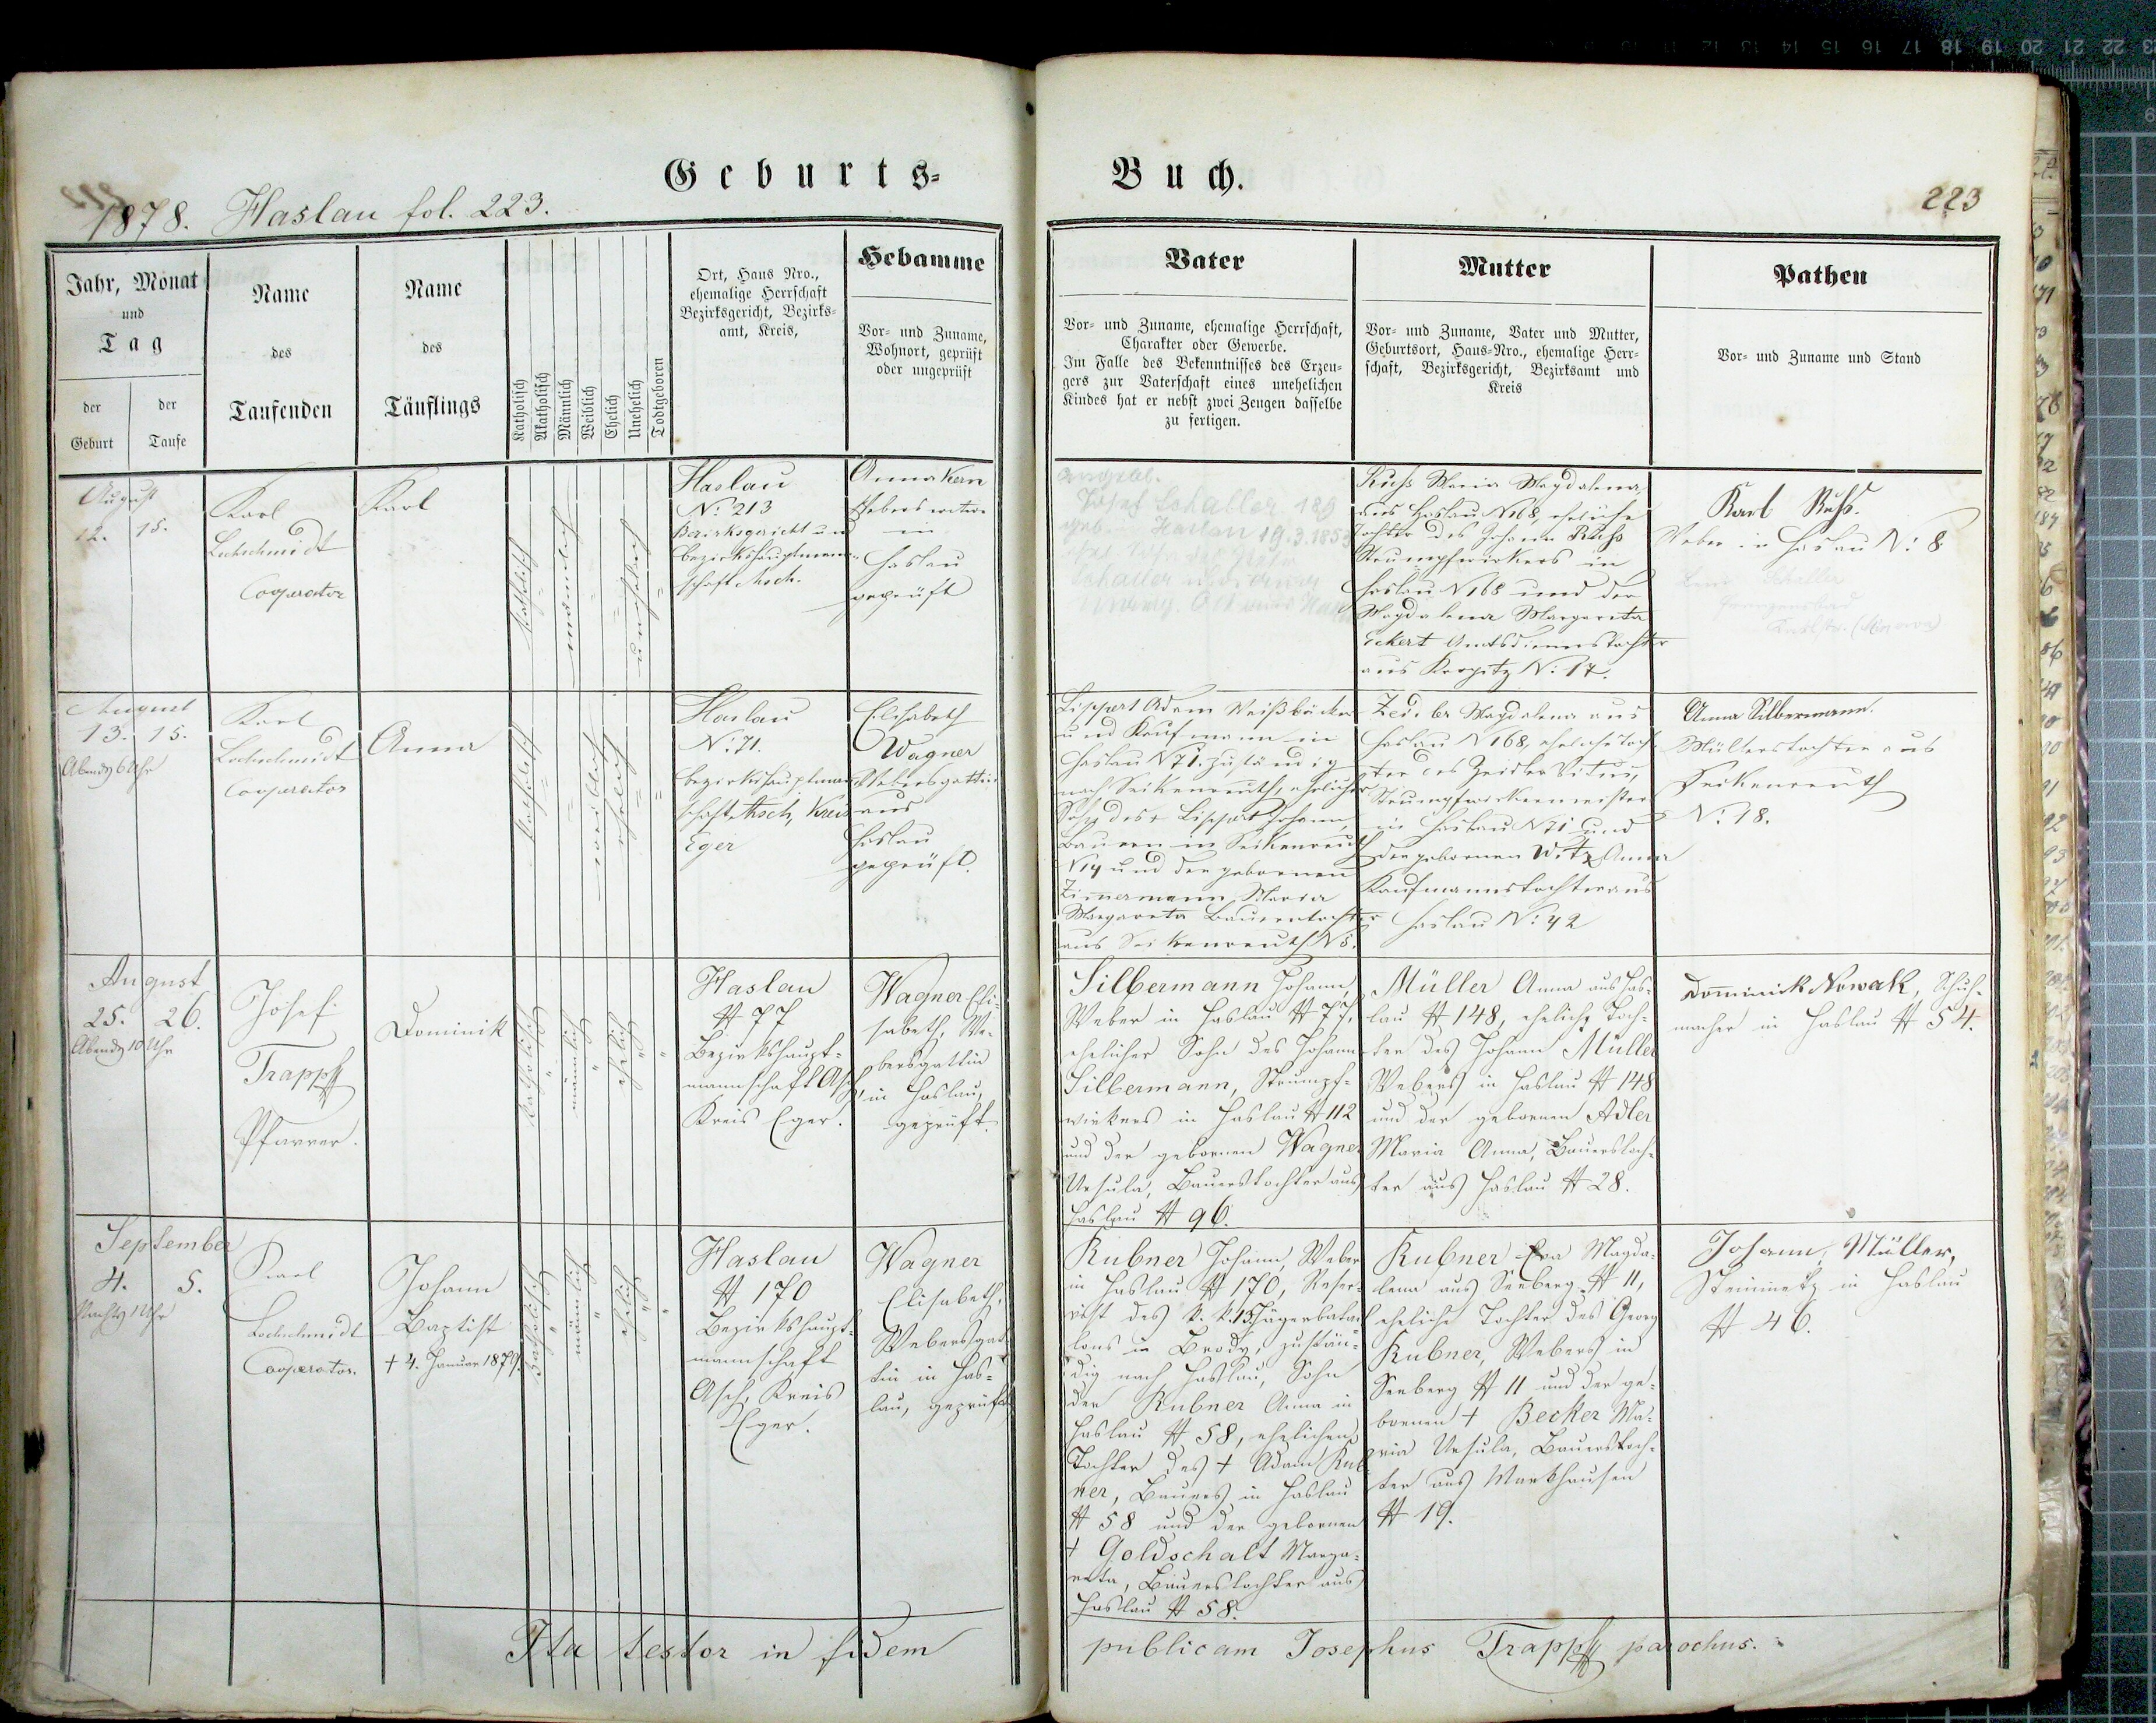 Geburts-
Buch.
1878. Haslau fol. 223.
223
Jahr, Monat
und
Tag
der
Geburt
der
Taufe
Name
des
Taufenden
Name
des
Täuflings
Katholisch
Akatholisch
Männlich
Weiblich
Ehelich
Unehelich
Todtgeboren
Ort, Haus Nro.,
ehemalige Herrschaft
Bezirksgericht, Bezirks-
amt, Kreis,
Hebamme
Vor- und Zuname,
Wohnort, geprüft
oder ungeprüft
Vater
Vor- und Zuname, ehemalige Herrschaft,
Charakter oder Gewerbe.
Im Falle des Bekenntnisses des Erzeu-
gers zur Vaterschaft eines unehelichen
Kindes hat er nebst zwei Zeugen dasselbe
zu fertigen.
Mutter
Vor- und Zuname, Vater und Mutter,
Geburtsort, Haus-Nro., ehemalige Herr-
schaft, Bezirksgericht, Bezirksamt und
Kreis
Pathen
Vor- und Zuname und Stand
August
12. 15.
Karl
Lochschmidt
Cooperator
Karl
katholisch
männlich
unehelich
Haslau
N: 213
Bezirksgericht und
Bezirkshauptmann-
schaft Asch.
Anna Kern
Webers witwe
in
Haslau
geprüft
Josef Schaller 189
geb. Haslau 19.3.185
Schaller
Ruhs Maria Magdalena,
aus Haslau N 168, eheliche
Tochter des Johann Ruhs
Strumpfwirkers in
Haslau N 168 und der
Magdalena Margareta
Eckert Amtsdienerstochter
aus Kropitz N: 17.
Karl Ruhs.
Weber in Haslau N: 8
Schaller
August
13. 15.
Abends 6 Uhr
Karl
Lochschmidt
Cooperator
Anna
katholisch
weiblich
ehelich
Haslau
N: 71.
Bezirkshauptmann
schaft Asch, Kreis
Eger
Elisabeth
Wagner
Webersgattin
aus
Haslau
geprüft.
Lippert Adam Weißbäcker
und Kaufmann in
Haslau N 71. zuständig
nach Seikenreuth, ehelicher
Sohn des + Lippert Johann,
Bauern in Seikenreuth
N 14 und der gebornen
Zimermann Maria
Margareta Bauerstochter
aus Seikenreuth N 5.
Zeidler Magdalena aus
Haslau N 168, eheliche Toch
ter des Zeidler Vitus,
Strumpfwirkermeister
in Haslau N 71 und
der gebornen Witz Anna
Kaufmannstochter aus
Haslau N: 42
Anna Silbermann.
Müllerstochter aus
Seikenreuth
N: 18.
August
25. 26.
Abends 10 Uhr
Josef
Trappl
Pfarrer.
Dominik
katholisch
männlich
ehelich
Haslau
# 77
Bezirkshaupt-
mannschaft Asch,
Kreis Eger.
Wagner Eli-
sabeth, We-
bersgattin
in Haslau,
geprüft.
Silbermann Johann,
Weber in Haslau # 77,
ehelicher Sohn des Johann
Silbermann, Strumpf-
wirkers in Haslau # 112
und der gebornen Wagner
Ursula, Bauerstochter aus
Haslau # 96.
Müller Anna aus Has-
lau # 148, eheliche Toch-
ter des Johann Müller
Webers in Haslau # 148
und der gebornen Adler
Maria Anna, Bauerstoch-
ter aus Haslau # 28.
Dominick Nowak, Schuh-
macher in Haslau # 54.
September
4. 5.
Nachts 1 Uhr
Karl
Lochschmidt
Cooperator.
Johann
Baptist
+ 4. Januar 1879.
katholisch
männlich
ehelich
Haslau
# 170
Bezirkshaupt-
mannschaft
Asch, Kreis
Eger.
Wagner
Elisabeth,
Webersgat-
tin in Has-
lau, geprüft
Kubner Johann, Weber
in Haslau # 170, Reser-
vist des k. k. 15 Jägerbatail
lons in Brody, zustän-
dig nach Haslau, Sohn
der Kubner Anna in
Haslau # 58, ehelichen
Tochter des + Adam Kub
ner, Bauers in Haslau
# 58 und der gebornen
+ Goldschalt Marga-
reta, Bauerstochter aus
Haslau # 58.
Kubner Eva Magda-
lena aus Seeberg # 11,
eheliche Tochter des Georg
Kubner, Webers in
Seeberg # 11 und der ge-
bornen + Becker Ma-
ria Ursula, Bauerstoch-
ter aus Markhausen
# 19.
Johann Müller,
Steinmetz in Haslau
# 46.
Ita testor in fidem
publicam Josephus Trappl parochus.